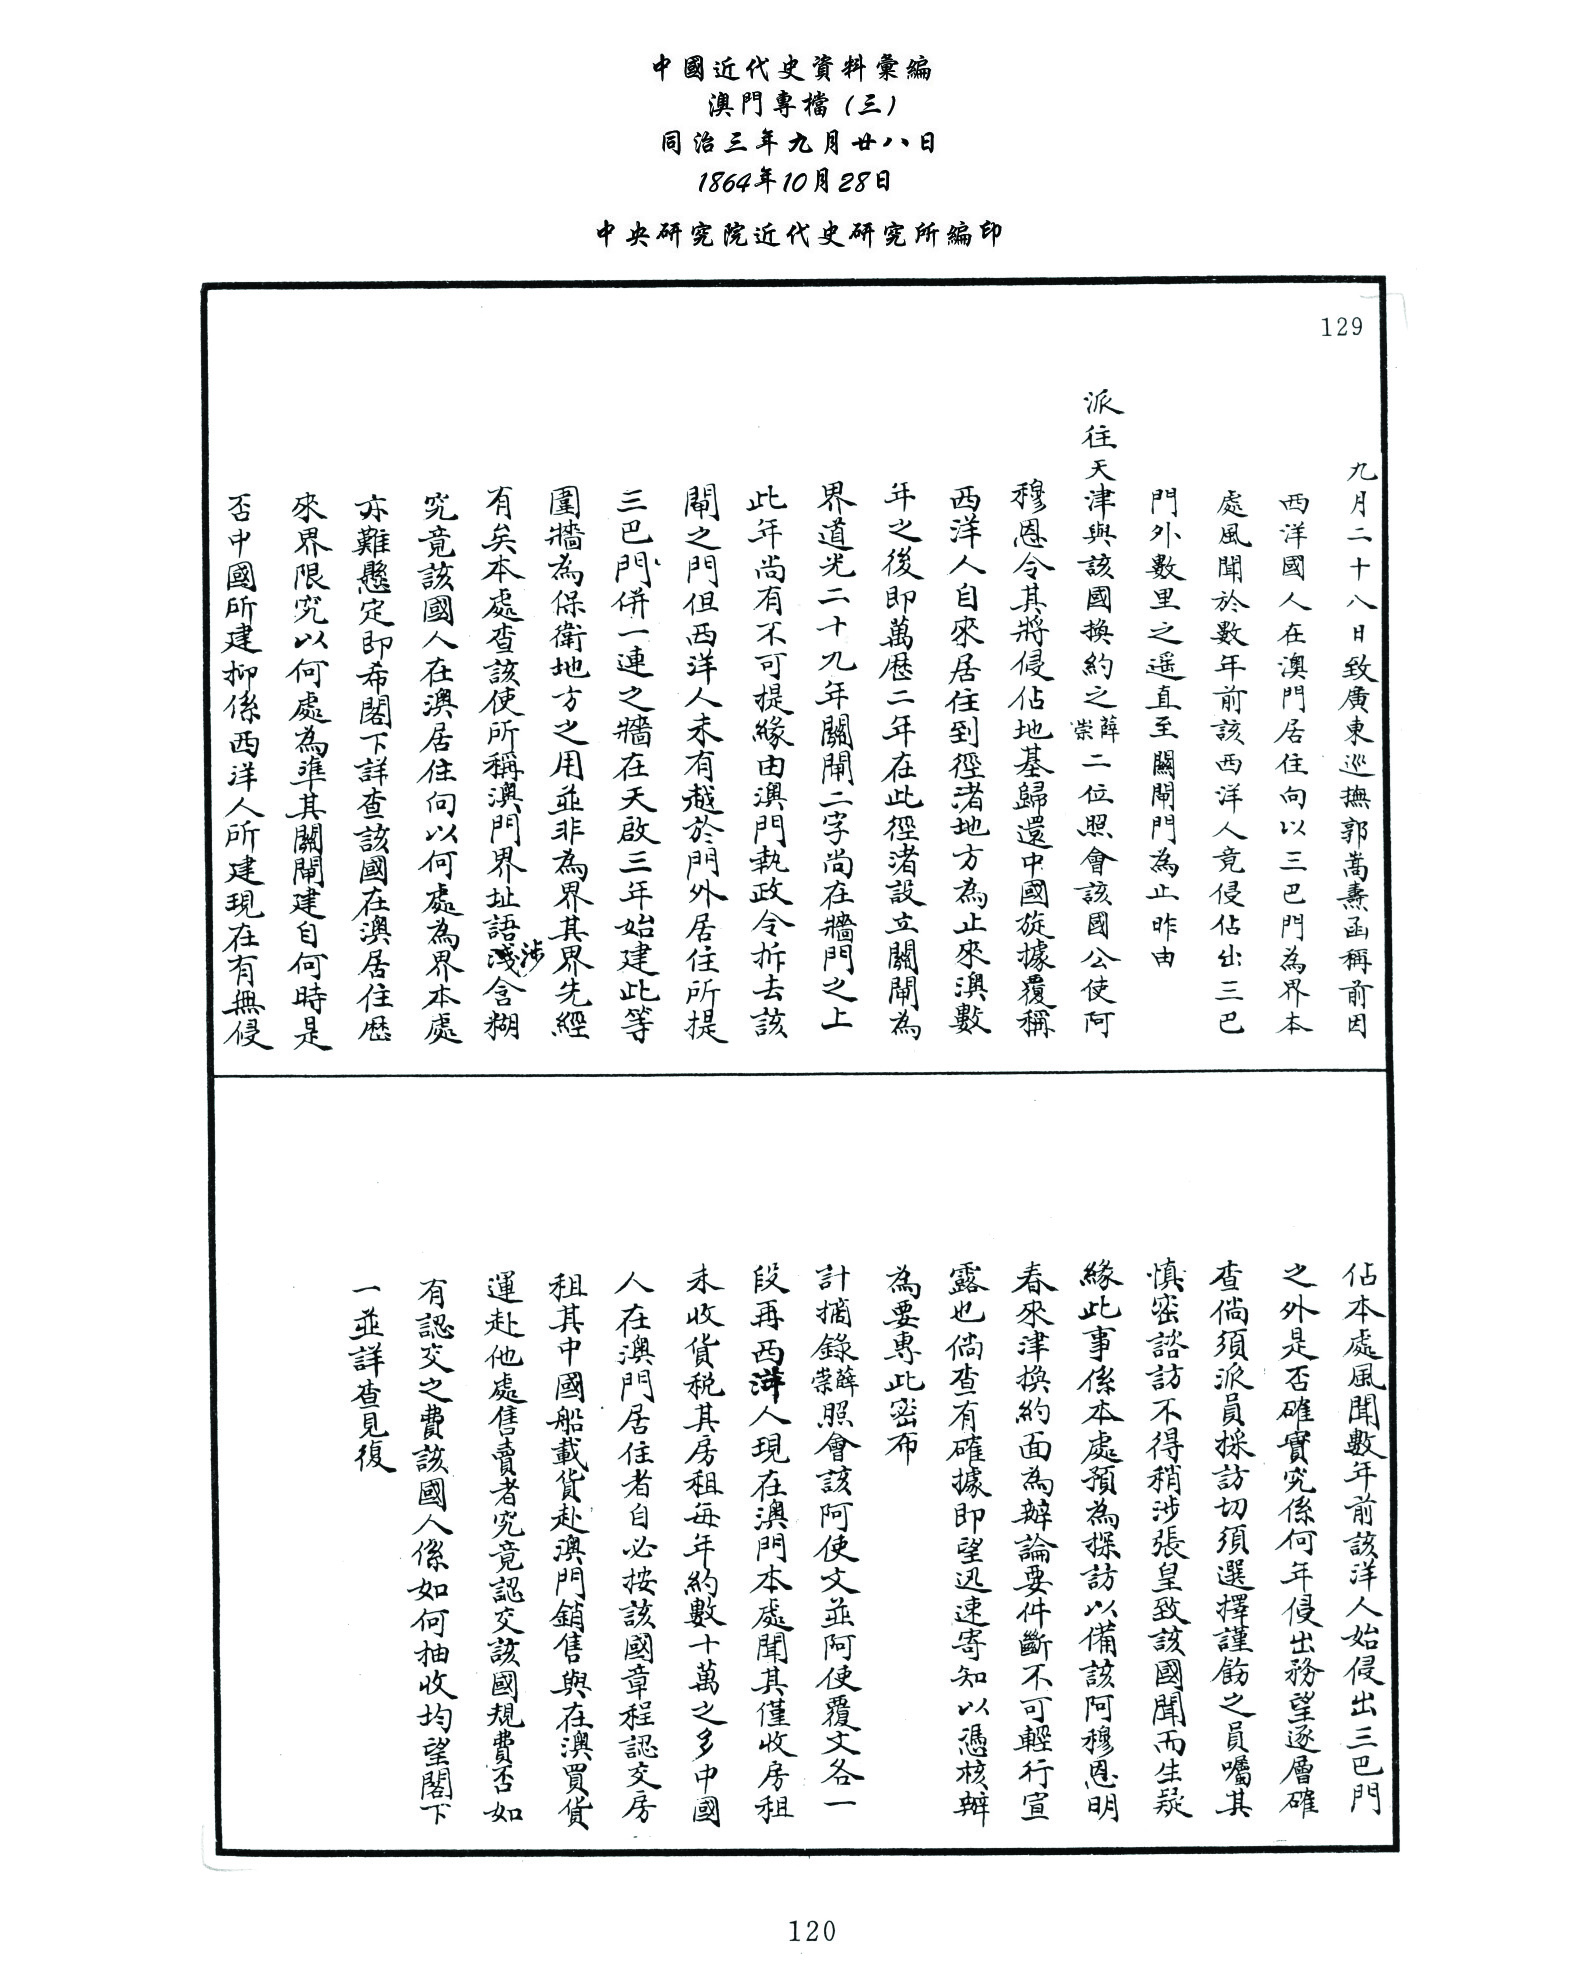 中國近代史資料彙編
澳門專檔(三)
同治三年九月廿八日
1864年10月28日
中央研究院近代史研究所編印
129
九月二十八日致廣東巡撫郭嵩燾函稱前因
西洋國人在澳門居住向以三巴門為界本
處風聞於數年前該西洋人竟侵佔出三巴
門外數里之遥直至關閘門為止昨由
派往天津與該國換約之薛崇二位照會該國公使阿
穆恩令其將侵佔地基歸還中國旋據覆稱
西洋人自來居住到徑渚地方為止來澳數
年之後即萬歷二年在此徑渚設立關閘為
界道光二十九年關閘二字尚在牆門之上
此年尚有不可提緣由澳門執政令拆去該
閘之門但西洋人未有越於門外居住所提
三巴門併一連之牆在天啟三年始建此等
圍牆為保衛地方之用並非為界其界先經
有矣本處查該使所稱澳門界址語涉含糊
究竟該國人在澳居住向以何處為界本處
亦難懸定即希閣下詳查該國在澳居住歷
來界限究以何處為準其關閘建自何時是
否中國所建抑係西洋人所建現在有無侵
佔本處風聞數年前該洋人始侵出三巴門
之外是否確實究係何年侵出務望逐層確
查倘須派員採訪切須選擇謹飭之員囑其
慎密諮訪不得稍涉張皇致該國聞而生疑
緣此事係本處預為探訪以備該阿穆恩明
春來津換約面為辯論要件斷不可輕行宣
露也倘查有確據即望迅速寄知以憑核辦
為要專此密布
計摘錄薛崇照會該阿使文並阿使覆文各一
段再西洋人現在澳門本處聞其僅收房租
未收貨税其房租每年約數十萬之多中國
人在澳門居住者自必按該國章程認交房
租其中國船載貨赴澳門銷售與在澳買貨
運赴他處售賣者究竟認交該國規費否如
有認交之費該國人係如何抽收均望閣下
一並詳查見復
120